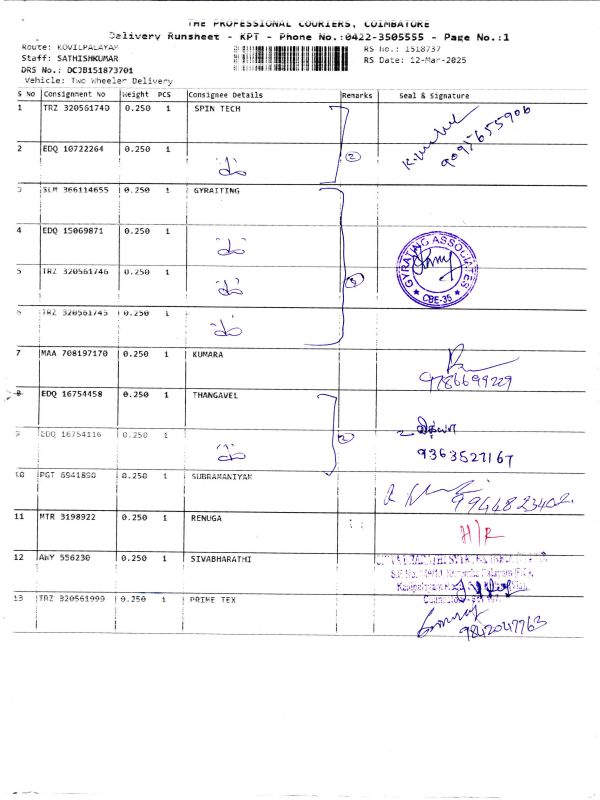 THE PROFESSIONAL COURIERS, COIMBATORE
Delivery Runsheet - KPT - Phone No.:0422-3505555 - Page No.:1
Route: KOVILPALAYAM
RS No.: 1518737
Staff: SATHISHKUMAR
RS Date: 12-Mar-2025
DRS No.: DCJB151873701
Vehicle: Two Wheeler Delivery
S No Consignment No Weight PCS Consignee Details Remarks Seal & Signature
1 TRZ 320561740 0.250 1 SPIN TECH 9095655906
2 EDQ 10722264 0.250 1 2
3 SLM 366114655 0.250 1 GYRAITING
4 EDQ 15069871 0.250 1
GYRATING ASSOCIATES
CBE-35
5 TRZ 320561746 0.250 1
6 TRZ 320561745 0.250 1
7 MAA 708197170 0.250 1 KUMARA
9786699229
8 EDQ 16754458 0.250 1 THANGAVEL
9 EDQ 16754116 0.250 1 2
9363527167
10 PGT 6941890 0.250 1 SUBRAMANIYAM
9944823402
11 MTR 3198922 0.250 1 RENUGA
H/R
12 ANY 556230 0.250 1 SIVABHARATHI
13 TRZ 320561999 0.250 1 PRIME TEX
9842047763